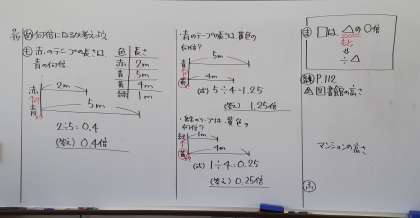 何倍になるか考えよう
赤のテープの長さは、
青の何倍
色 長さ
赤 2m
青 5m
黄 4m
緑 1m
2m
赤
5m
青
2÷5=0.4
(答え) 0.4倍
・青のテープの長さは、黄色の
何倍?
5m
青
4m
黄
(式) 5÷4=1.25
(答え) 1.25倍
・緑のテープは、黄色の
何倍?
1m
緑
4m
黄
(式) 1÷4=0.25
(答え) 0.25倍
ま
□は、△の〇倍
÷△
P.112
図書館の高さ
マンションの高さ
ふ